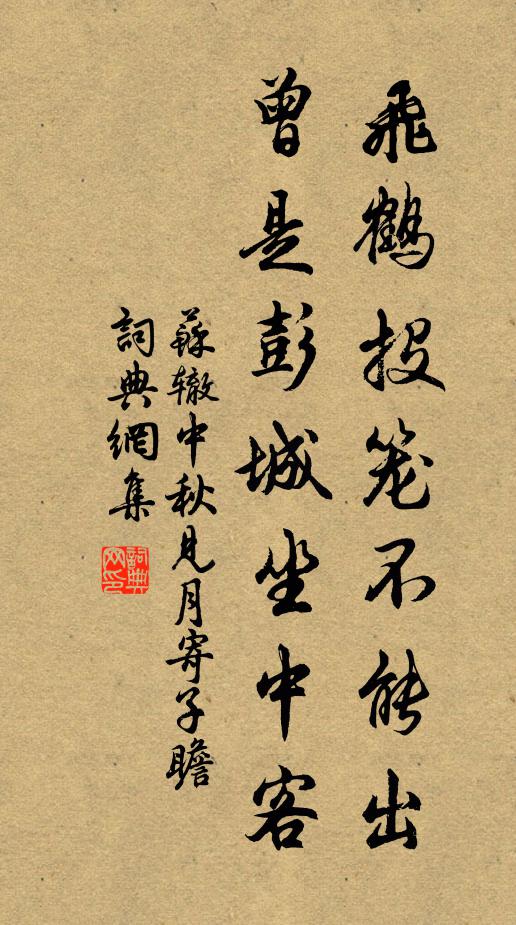 飛鶴投笼不能出
曾是彭城坐中客
蘇辙中秋見月寄子瞻
詞典網集
詞典网印